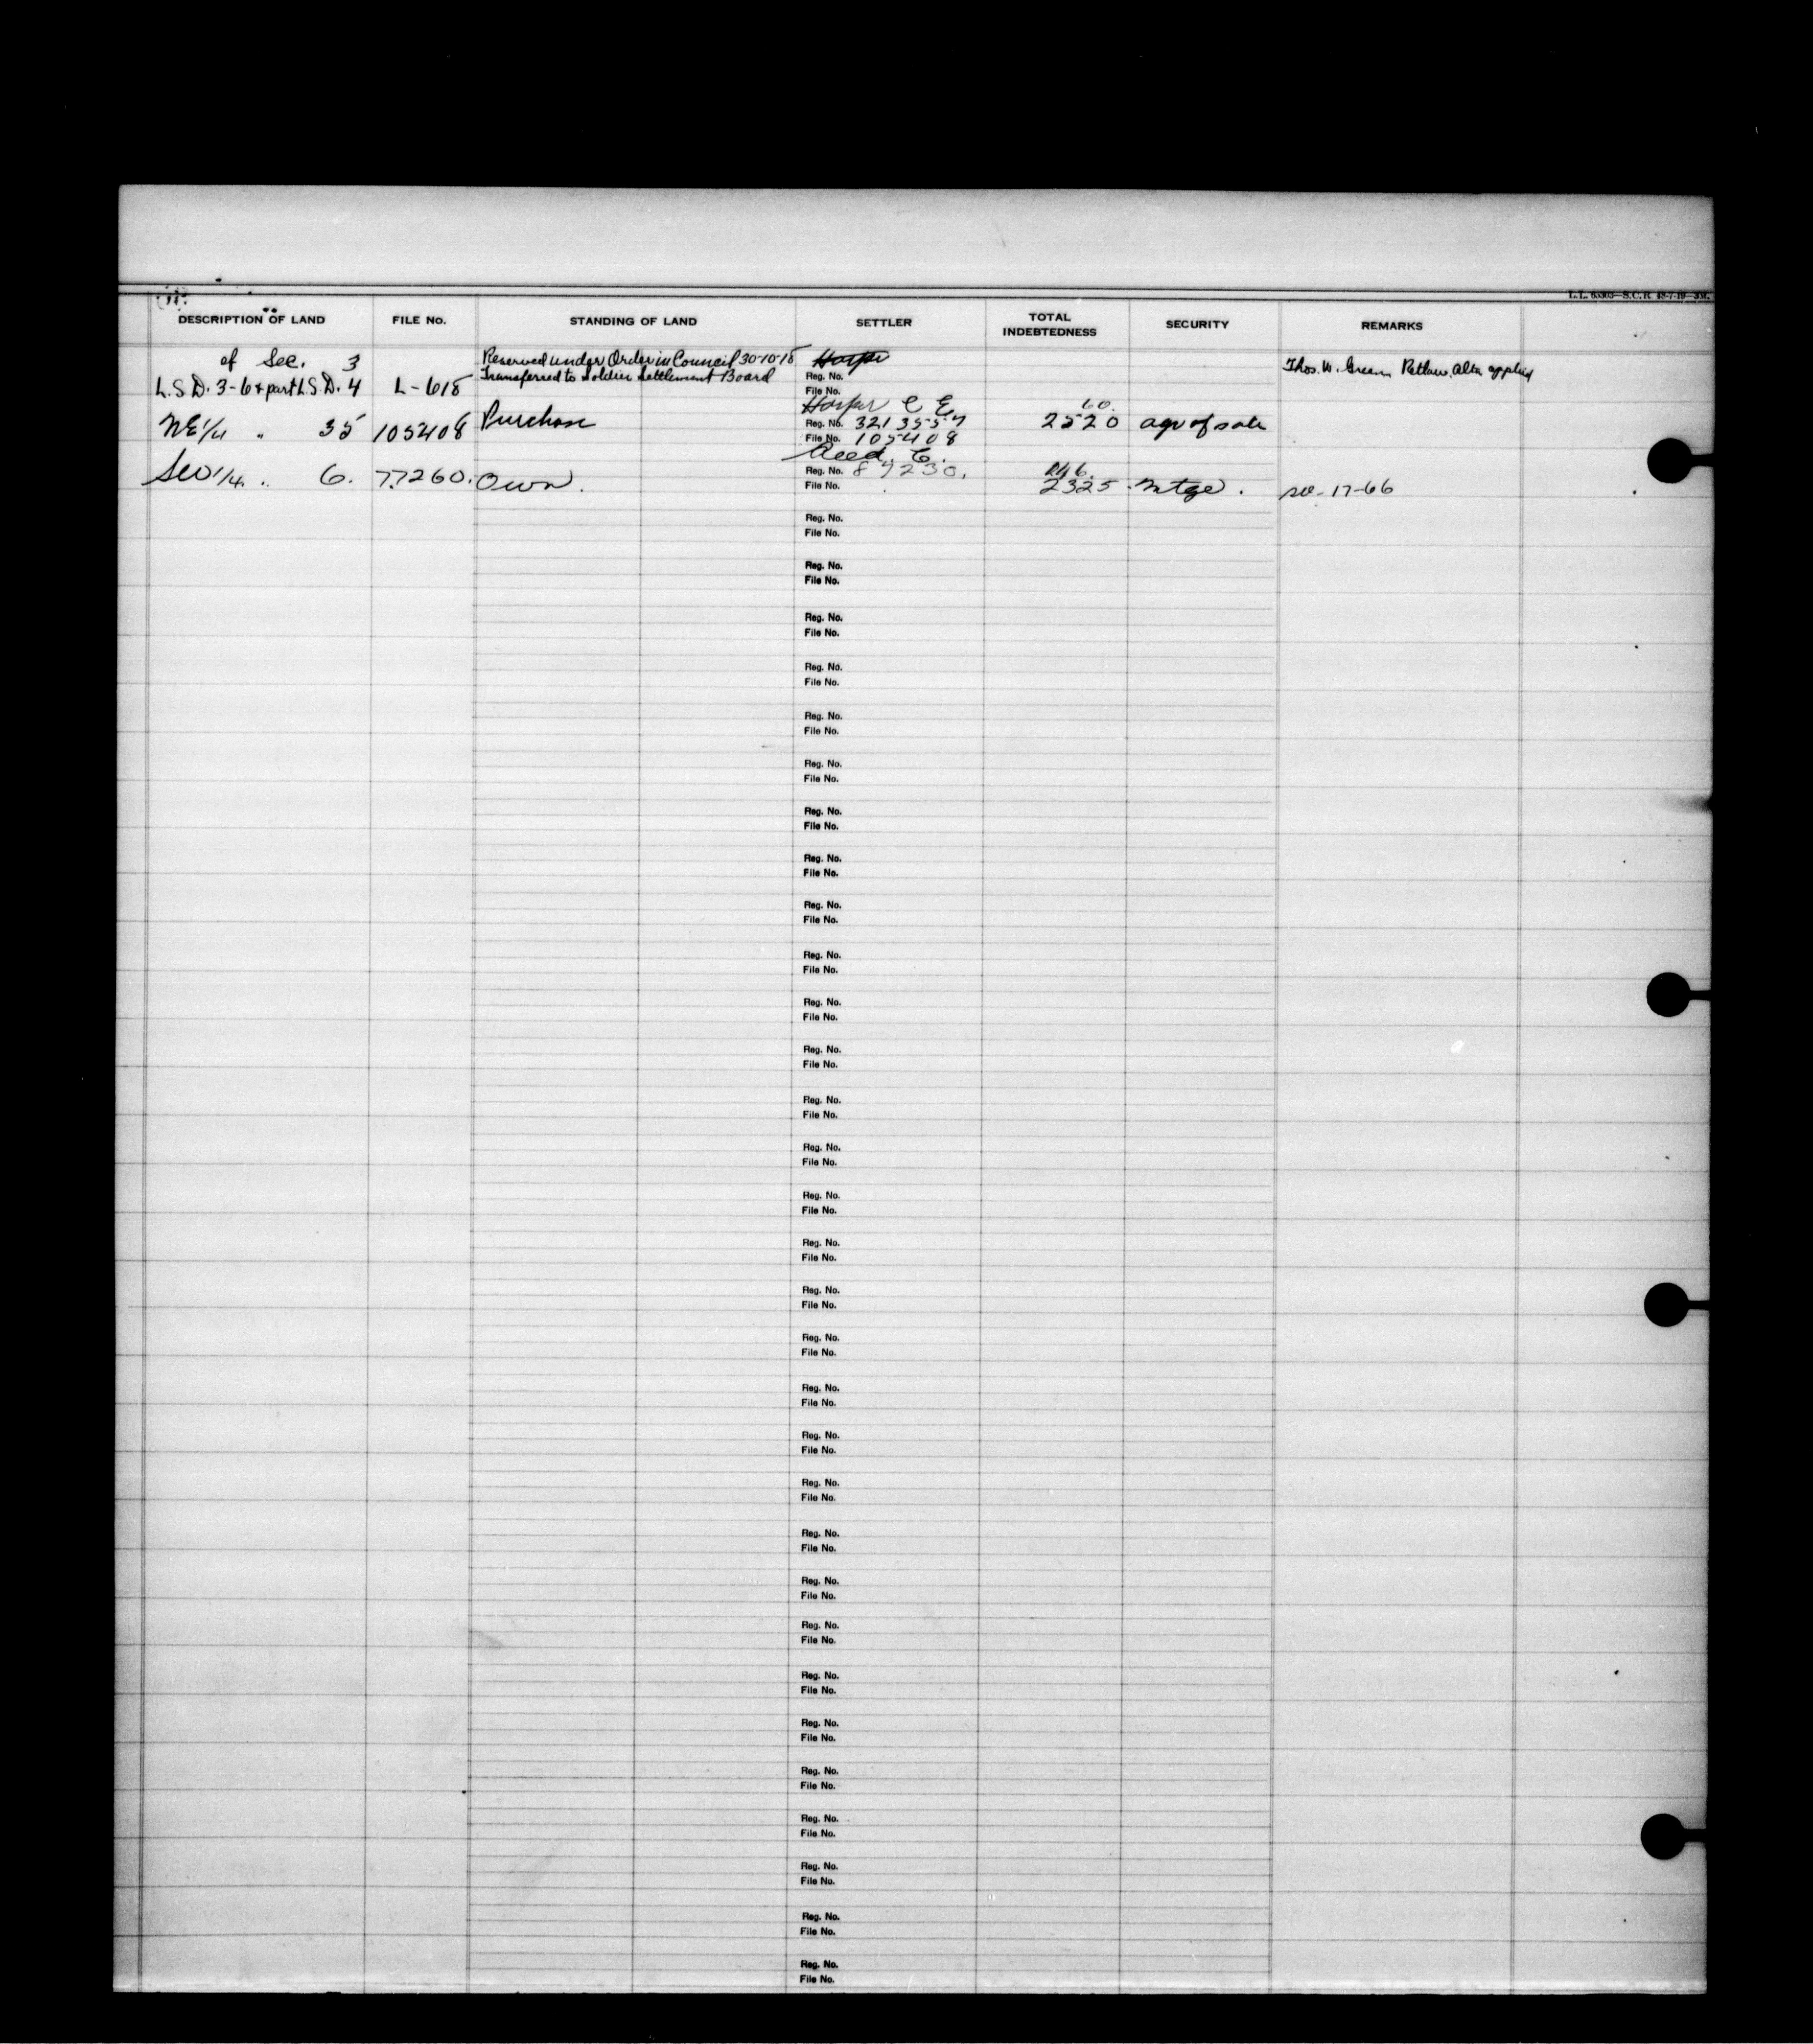 L.L. 65303—S.C.R. 48-7-19—3M.
DESCRIPTION OF LAND FILE No. STANDING OF LAND SETTLER TOTAL INDEBTEDNESS SECURITY REMARKS
of Sec. 3 Reserved under Order in Council 30-10-18 Harper
L.S.D. 3-6 & part L.S.D. 4 L-618 Transferred to Soldier Settlement Board Reg. No. Thos. W. Green Retlaw. Alta applied
File No.
Harper C E 60.
NE 1/4 " 35 105408 Purchase Reg. No. 3213557 2520 agr of sale
File No. 105408
Reed, C.
SW 1/4 .. 6. 77260. Own. Reg. No. 87230.
File No. 2325 Mtge. 17-66
Reg. No.
File No.
Reg. No.
File No.
Reg. No.
File No.
Reg. No.
File No.
Reg. No.
File No.
Reg. No.
File No.
Reg. No.
File No.
Reg. No.
File No.
Reg. No.
File No.
Reg. No.
File No.
Reg. No.
File No.
Reg. No.
File No.
Reg. No.
File No.
Reg. No.
File No.
Reg. No.
File No.
Reg. No.
File No.
Reg. No.
File No.
Reg. No.
File No.
Reg. No.
File No.
Reg. No.
File No.
Reg. No.
File No.
Reg. No.
File No.
Reg. No.
File No.
Reg. No.
File No.
Reg. No.
File No.
Reg. No.
File No.
Reg. No.
File No.
Reg. No.
File No.
Reg. No.
File No.
Reg. No.
File No.
Reg. No.
File No.